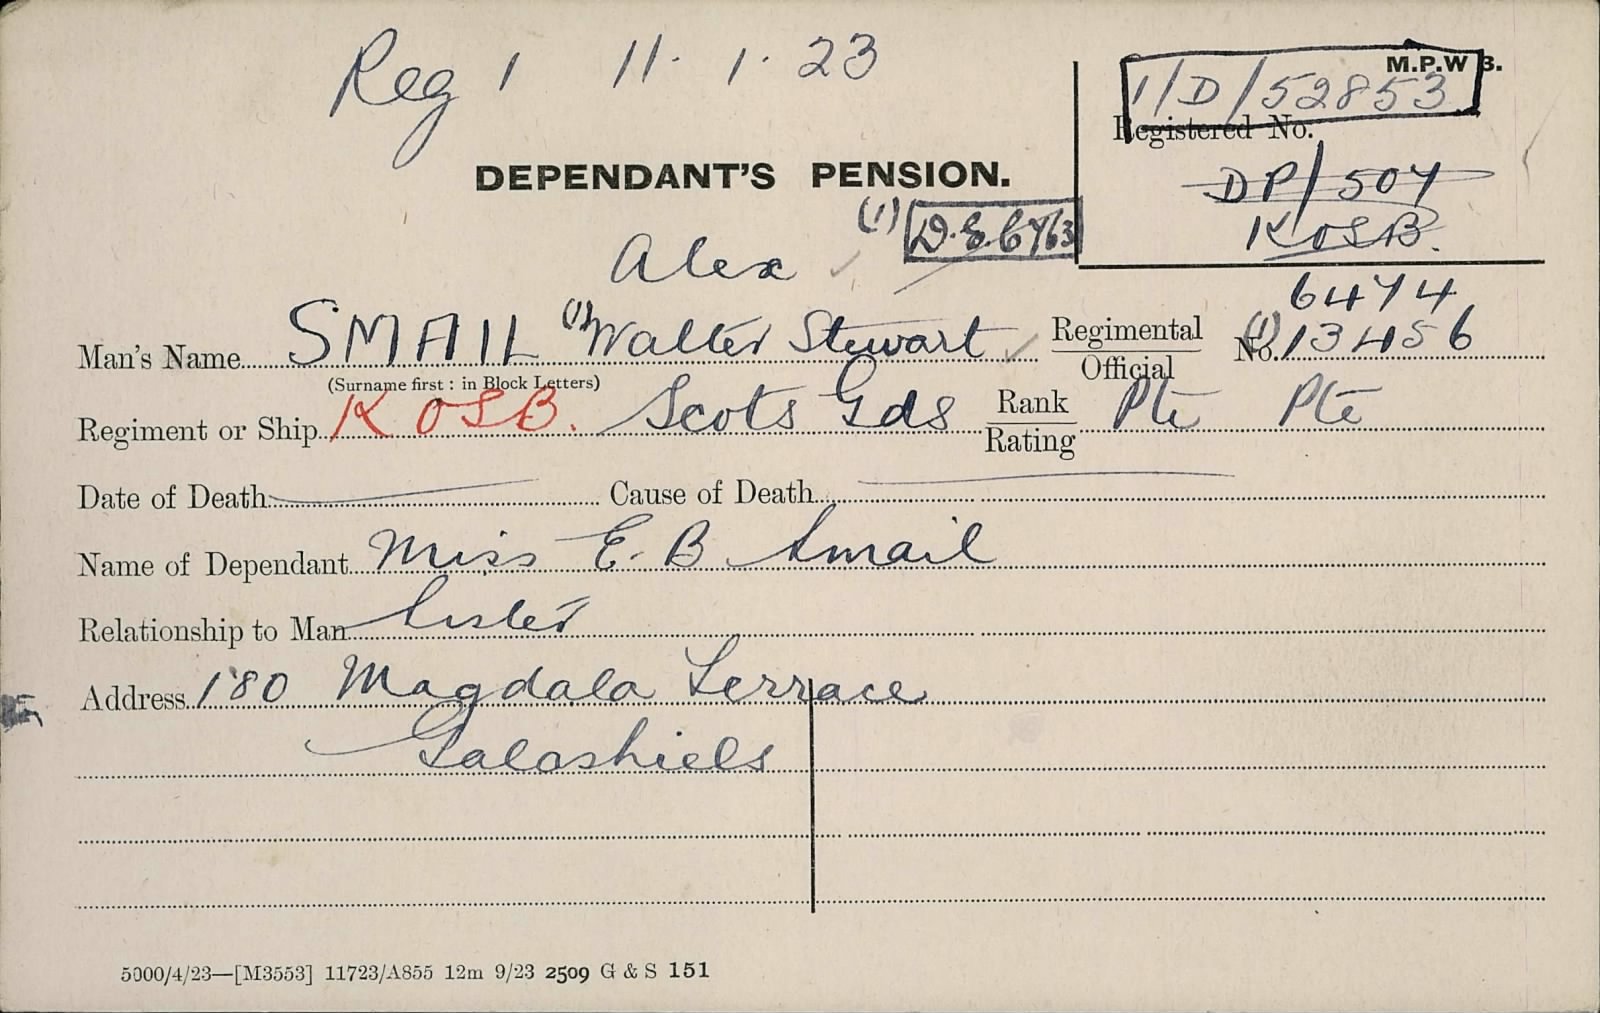 Reg 1 11. 1. 23
M.P.W.3.
1/D/52853
Registered No.
DP/504
KOSB.
DEPENDANT'S PENSION.
(1)
Alex
6474
Man's Name SMAIL (1) Walter Stewart Regimental/Official No. (1) 13456
(Surname first : in Block Letters)
Regiment or Ship KOSB. Scots Gds Rank/Rating Pte Pte
Date of Death Cause of Death
Name of Dependant Miss E. B Smail
Relationship to Man Sister
Address 180 Magdala Terrace
Galashiels
5000/4/23—[M3553] 11723/A855 12m 9/23 2509 G & S 151